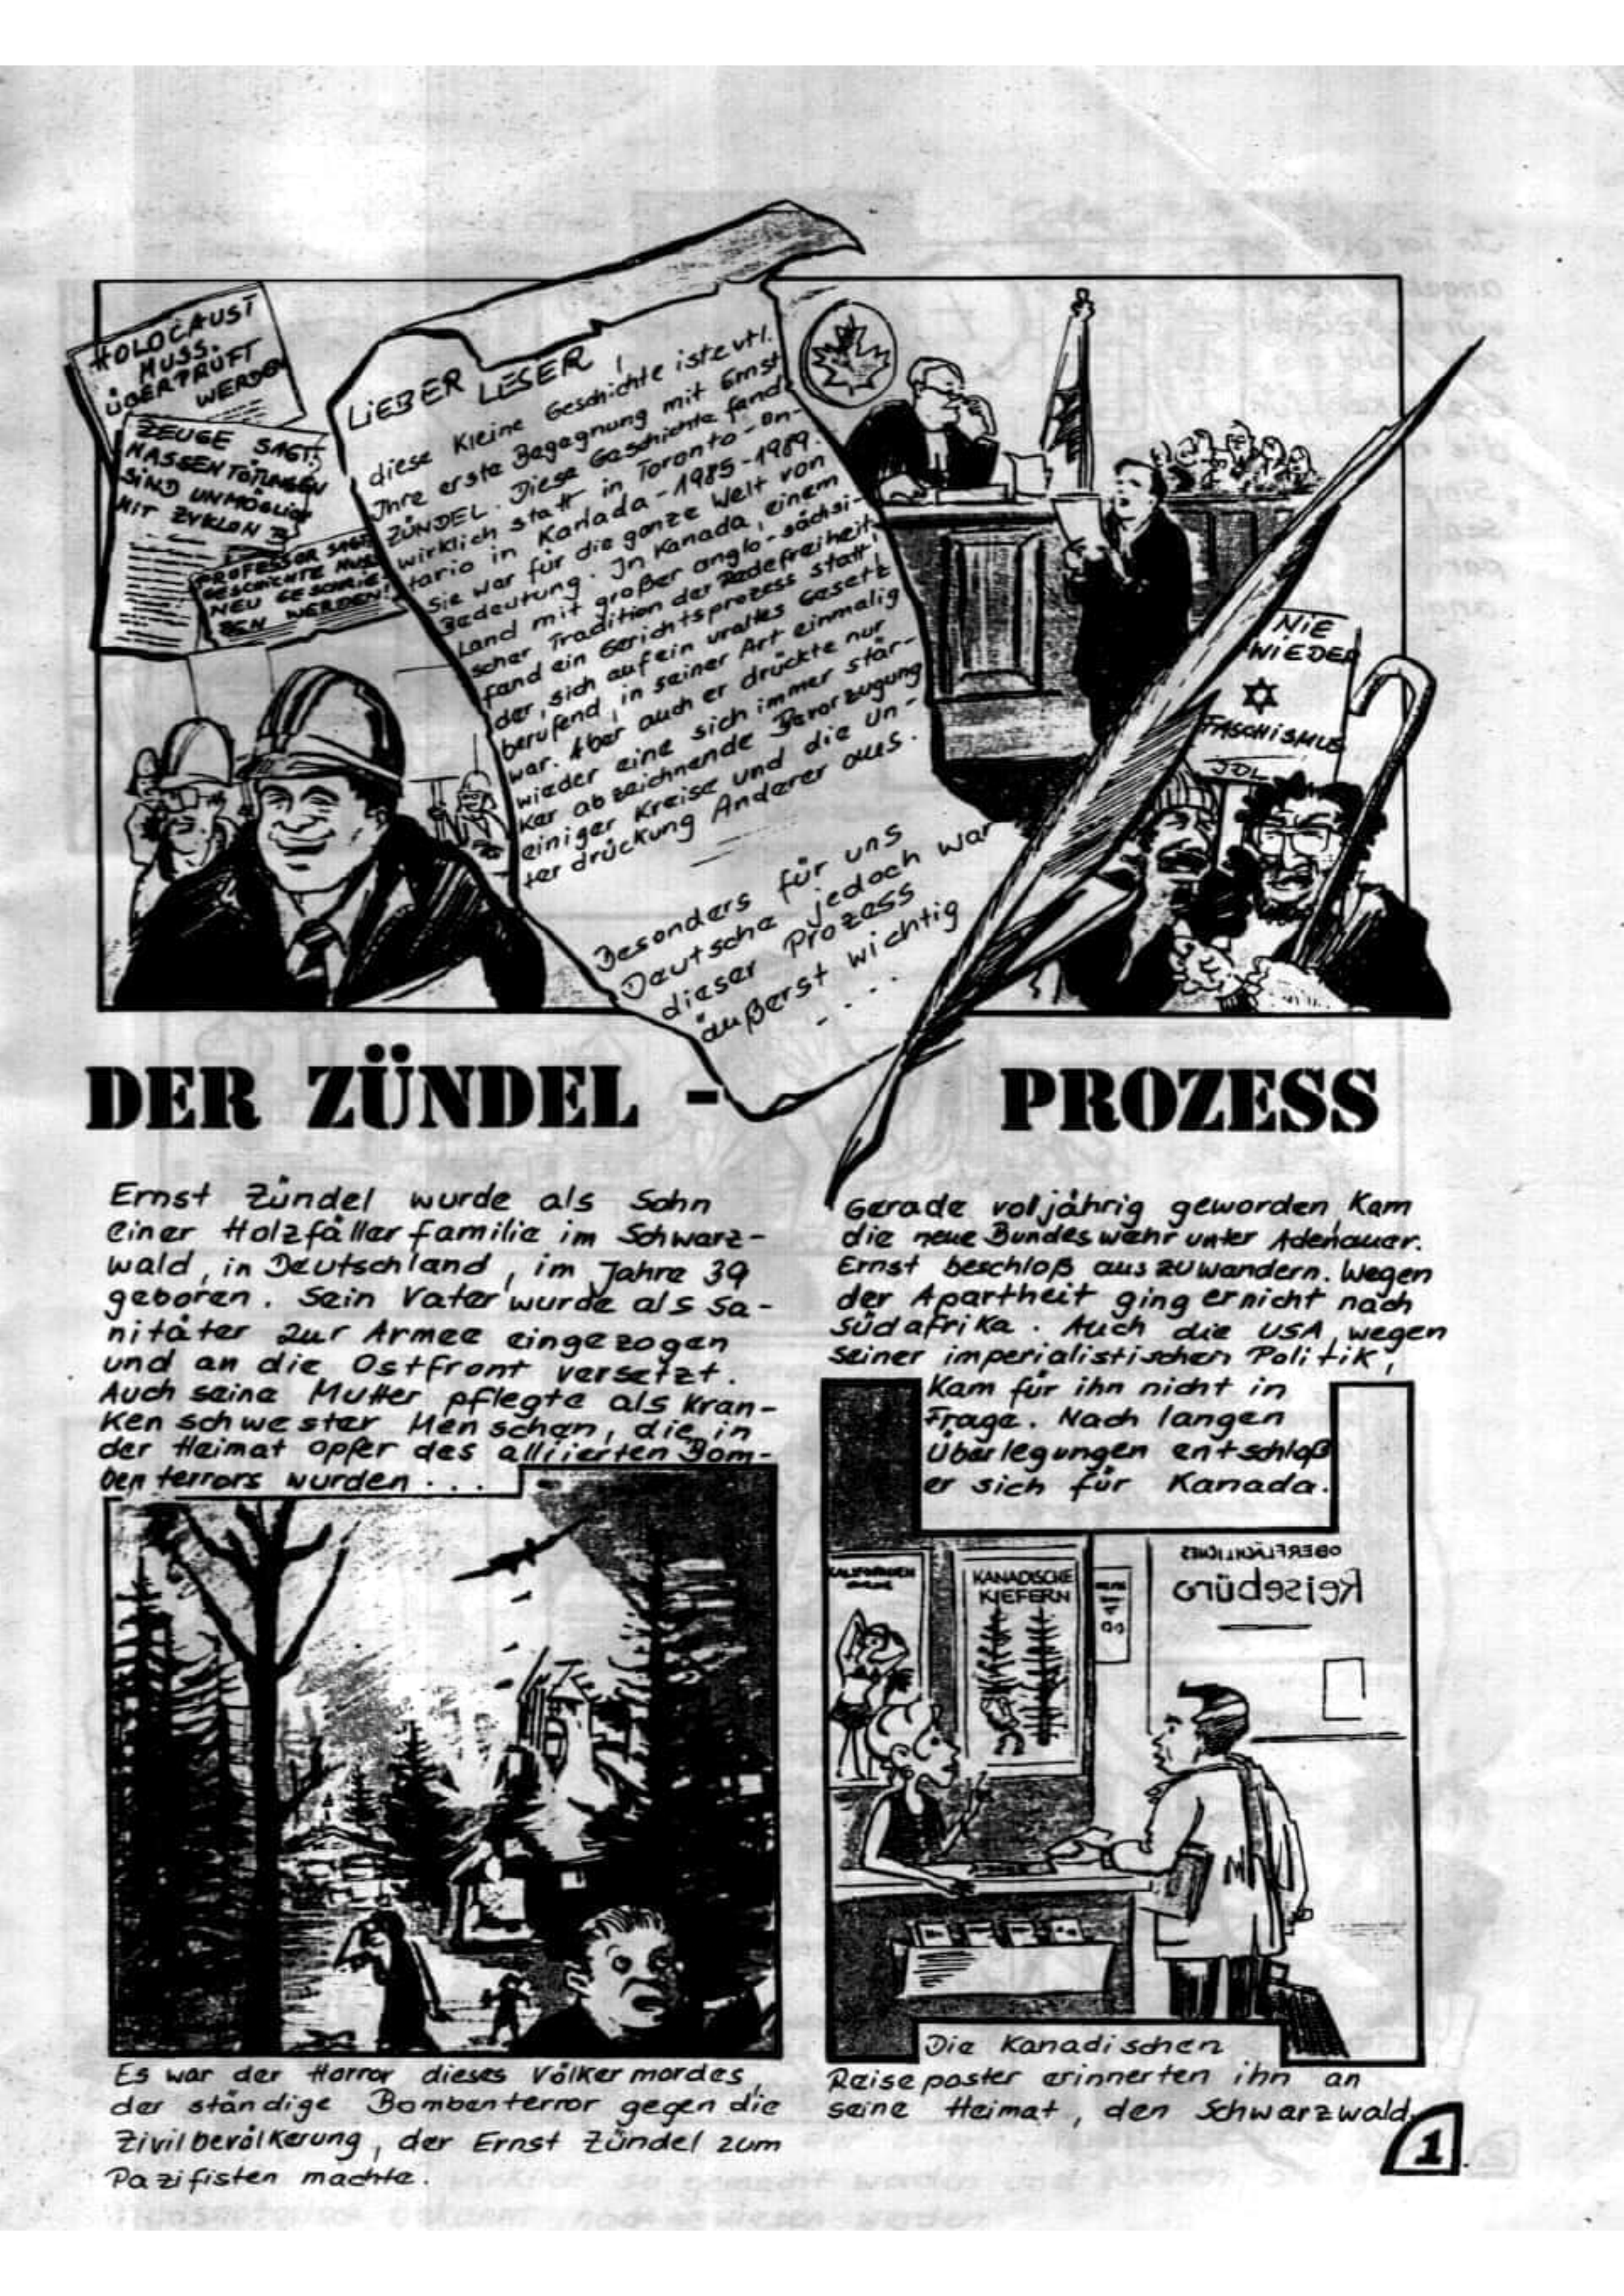 HOLOCAUST
MUSS
ÜBERPRÜFT
WERDEN
ZEUGE SAGT:
MASSENTÖTUNGEN
SIND UNMÖGLICH
MIT ZYKLON B
PROFESSOR SAGT
GESCHICHTE MUSS
NEU GESCHRIE-
BEN WERDEN!
LIEBER LESER!
diese kleine Geschichte ist evtl.
Ihre erste Begegnung mit Ernst
ZÜNDEL. Diese Geschichte fand
wirklich statt in Toronto-On-
tario in Kanada - 1985-1989.
Sie war für die ganze Welt von
Bedeutung. In Kanada, einem
Land mit großer anglo-sächsi-
scher Tradition der Redefreiheit,
fand ein Gerichtsprozess statt,
der, sich auf ein uraltes Gesetz
berufend, in seiner Art einmalig
war. Aber auch er drückte nur
wieder eine sich immer stär-
ker abzeichnende Bevorzugung
einiger Kreise und die Un-
terdrückung Anderer aus.
Besonders für uns
Deutsche jedoch war
dieser Prozess
äußerst wichtig
....
NIE
WIEDER
FASCHISMUS
JDL
DER ZÜNDEL - PROZESS
Ernst Zündel wurde als Sohn
einer Holzfällerfamilie im Schwarz-
wald, in Deutschland, im Jahre 39
geboren. Sein Vater wurde als Sa-
nitäter zur Armee eingezogen
und an die Ostfront versetzt.
Auch seine Mutter pflegte als Kran-
kenschwester Menschen, die in
der Heimat opfer des alliierten Bom-
ben terrors wurden ...
Es war der Horror dieses Völkermordes,
der ständige Bombenterror gegen die
Zivilbevölkerung, der Ernst Zündel zum
Pazifisten machte.
Gerade volljährig geworden, kam
die neue Bundeswehr unter Adenauer.
Ernst beschloß auszuwandern. Wegen
der Apartheit ging er nicht nach
Südafrika. Auch die USA, wegen
seiner imperialistischen Politik,
kam für ihn nicht in
Frage. Nach langen
Überlegungen entschloß
er sich für Kanada.
KALIFORNIEN
KANADISCHE
KIEFERN
OBERFLÄCHLICHES
Reisebüro
Die Kanadischen
Reiseposter erinnerten ihn an
seine Heimat, den Schwarzwald.
1